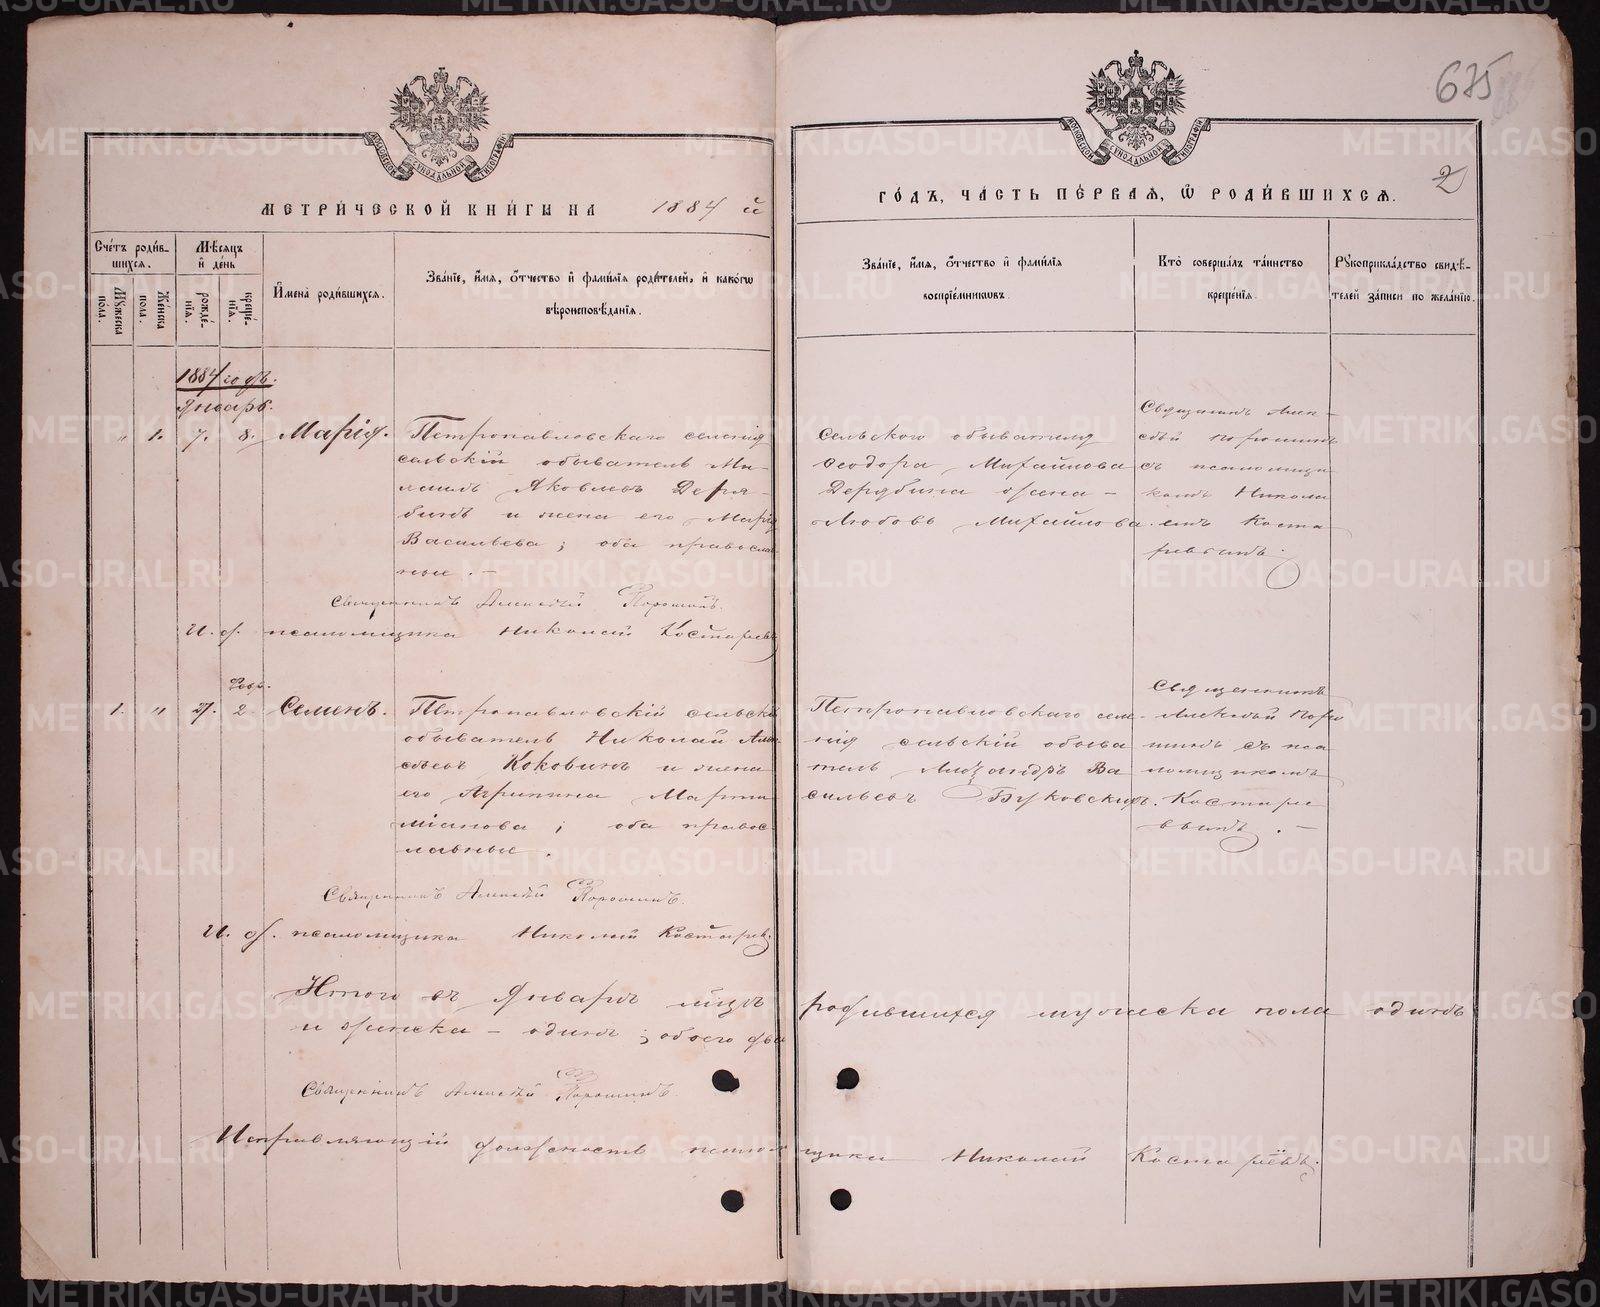 675
2
МЕТРИ́ЧЕСКОЙ КНИ́ГИ НА 1884 й
ГО́ДЪ, ЧА́СТЬ ПЕ́РВАЯ, Ѿ РОДИ́ВШИХСЯ.
Сче́тъ роди́в-
шихся.
Мѣ́сяцъ
и҆ де́нь
Мꙋ́жеска
по́ла.
Же́нска
пола.
рожде́-
нїя.
креще́-
нїя.
И҆мена̀ роди́вшихся.
Зва́нїе, и҆́мя, ѻ҆́тчество и҆ фами́лїя роди́телей, и҆ како́гѡ
вѣроисповѣ́данїя.
Зва́нїе, и҆́мя, ѻ҆́тчество и҆ фами́лїя
воспрїе́мникѡвъ.
Кто̀ соверша́лъ та́инство
креще́нїя.
Рꙋкоприкла́дство свидѣ́-
телей за́писи по жела́нїю.
1884 годъ.
Январь.
" 1. 7. 8. Марія. Петропавловскаго селенія
сельскій обыватель Ми-
хаилъ Яковлевъ Деря-
бинъ и жена его Марія
Васильева; оба православ
ные. –
Сельского обывателя
Ѳеодора Михайлова
Дерябина жена –
Любовь Михайлова.
Священникъ Алек-
сѣй Порошинъ
съ псаломщи
комъ Никола
емъ Коста
ревымъ.
Священникъ Алексѣй Порошинъ.
И. д. псаломщика Николай Костаревъ
Февр.
1. " 2. Семенъ. Петропавловскій сельскій
обыватель Николай Алек
сѣевъ Коковинъ и жена
его Агрипина Марти
міанова; оба правос
лавные.
Петропавловскаго селе-
нія сельскій обыва
тель Александръ Ва
сильевъ Буковскихъ.
Священникъ
Алексѣй Поро
шинъ съ пса
ломщикомъ
Костаре
вымъ. –
Священникъ Алексѣй Порошинъ.
И. д. псаломщика Николай Костаревъ
Итого въ Январѣ мѣцѣ родившихся мужеска пола одинъ
и женска – одинъ; обоего два
Священникъ Алексѣй Порошинъ.
Исправляющій должность псаломщика Николай Костарёвъ.